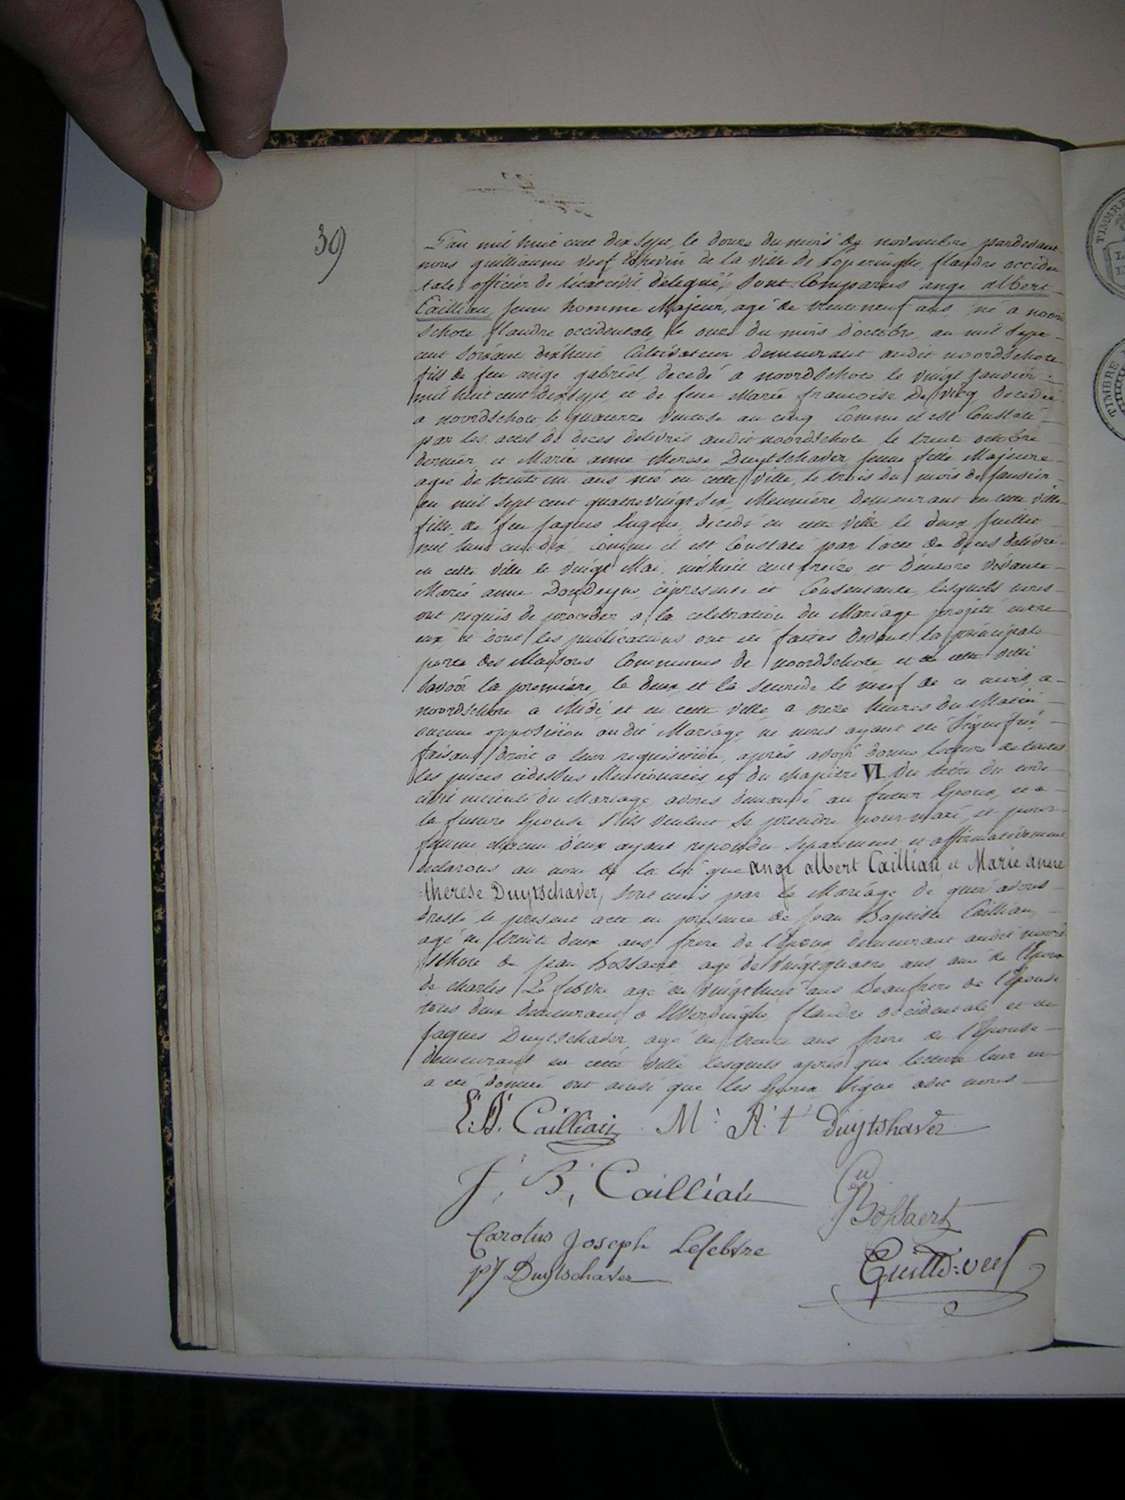 39
L'an mil huit cent dix sept, le douze du mois de novembre pardevant
nous guilliaume veef Echevin de la ville de Poperinghe flandre occiden
tale officier de l'etat civil delegué, sont Comparus ange albert
Cailliau, jeune homme Majeur, agé de vente neuf ans, né a noord
schote flandre occidentale, le onze du mois d'octobre, an mil sept
cent soixante dixhuit, Cultivateur demeurant audit noordschote
fils de feu ange gabriel, decedé a noordschote le vingt janvier
mil huit cent dixsept, et de feue Marie francoise De vicq decedée
a noordschote le quatorze ventose an cinq Comme il est Constaté
par les actes de deces delivrés audit noordschote le trente octobre
dernier et Marie anne therese Duytschaver jeune fille Majeure
agée de trente un ans née en cette ville, le trois du mois de janvier
an mil sept cent quatrevingt six, Meunière, demeurant en cette ville
fille de feu jaques Eugene, decedé en cette ville le deux juillet
mil huit cent dix, comme il est Constaté par l'acte de deces delivré
en cette ville le vingt Mai, milhuit cent treize et d'encore vivante
Marie anne cipresente et Consentante, lesquels nous
ont requis de proceder a la celebration du Mariage projeté entre
eux et dont les publications ont été faites devant la principale
porte des Maisons Communes de noordschote et de cette ville
savoir la première, le deux et la seconde le neuf de ce mois, a
noordschote a Midi et en cette ville a onze heures du Matin
aucune opposition audit Mariage ne nous ayant été signifiée
faisant droit a leur requisition, après avoir donné lecture de toutes
les pieces cidessus Mentionnées et du chapitre VI du titre du code
civil intitulé du Mariage, avons demandé au futur Epoux, et a
la future Epouse s'ils veulent se prendre pour mari, et pour
femme chacun d'eux ayant repondu separement et affirmativement
declarons au nom de la loi que ange albert Cailliau, et Marie anne
therese Duytschaver, sont unis par le Mariage de quoi avons
dressé le present acte en presence de Jean Baptiste Cailliau,
agé de trente deux ans, frere de l'Epoux demeurant audit noord
schote de Jean Bossaert agé de vingtquatre ans, ami de l'Epoux
de charles Lefebvre agé de vingthuit ans Beaufrere de l'Epouse
tous deux demeurant a Elverdinghe flandre occidentale et de
jaques Duytschaver, agé de trente ans frere de l'Epouse
demeurant en cette ville lesquels après que lecture leur en
a été donnée ont ainsi que les Epoux signé avec nous
E: A: Cailliau M: A: t Duytshaver
J. B. Cailliau
Bossaert
Carolus Joseph Lefebvre
pJ Duytschaver
Guille: veef
TIMBRE
TIMBRE